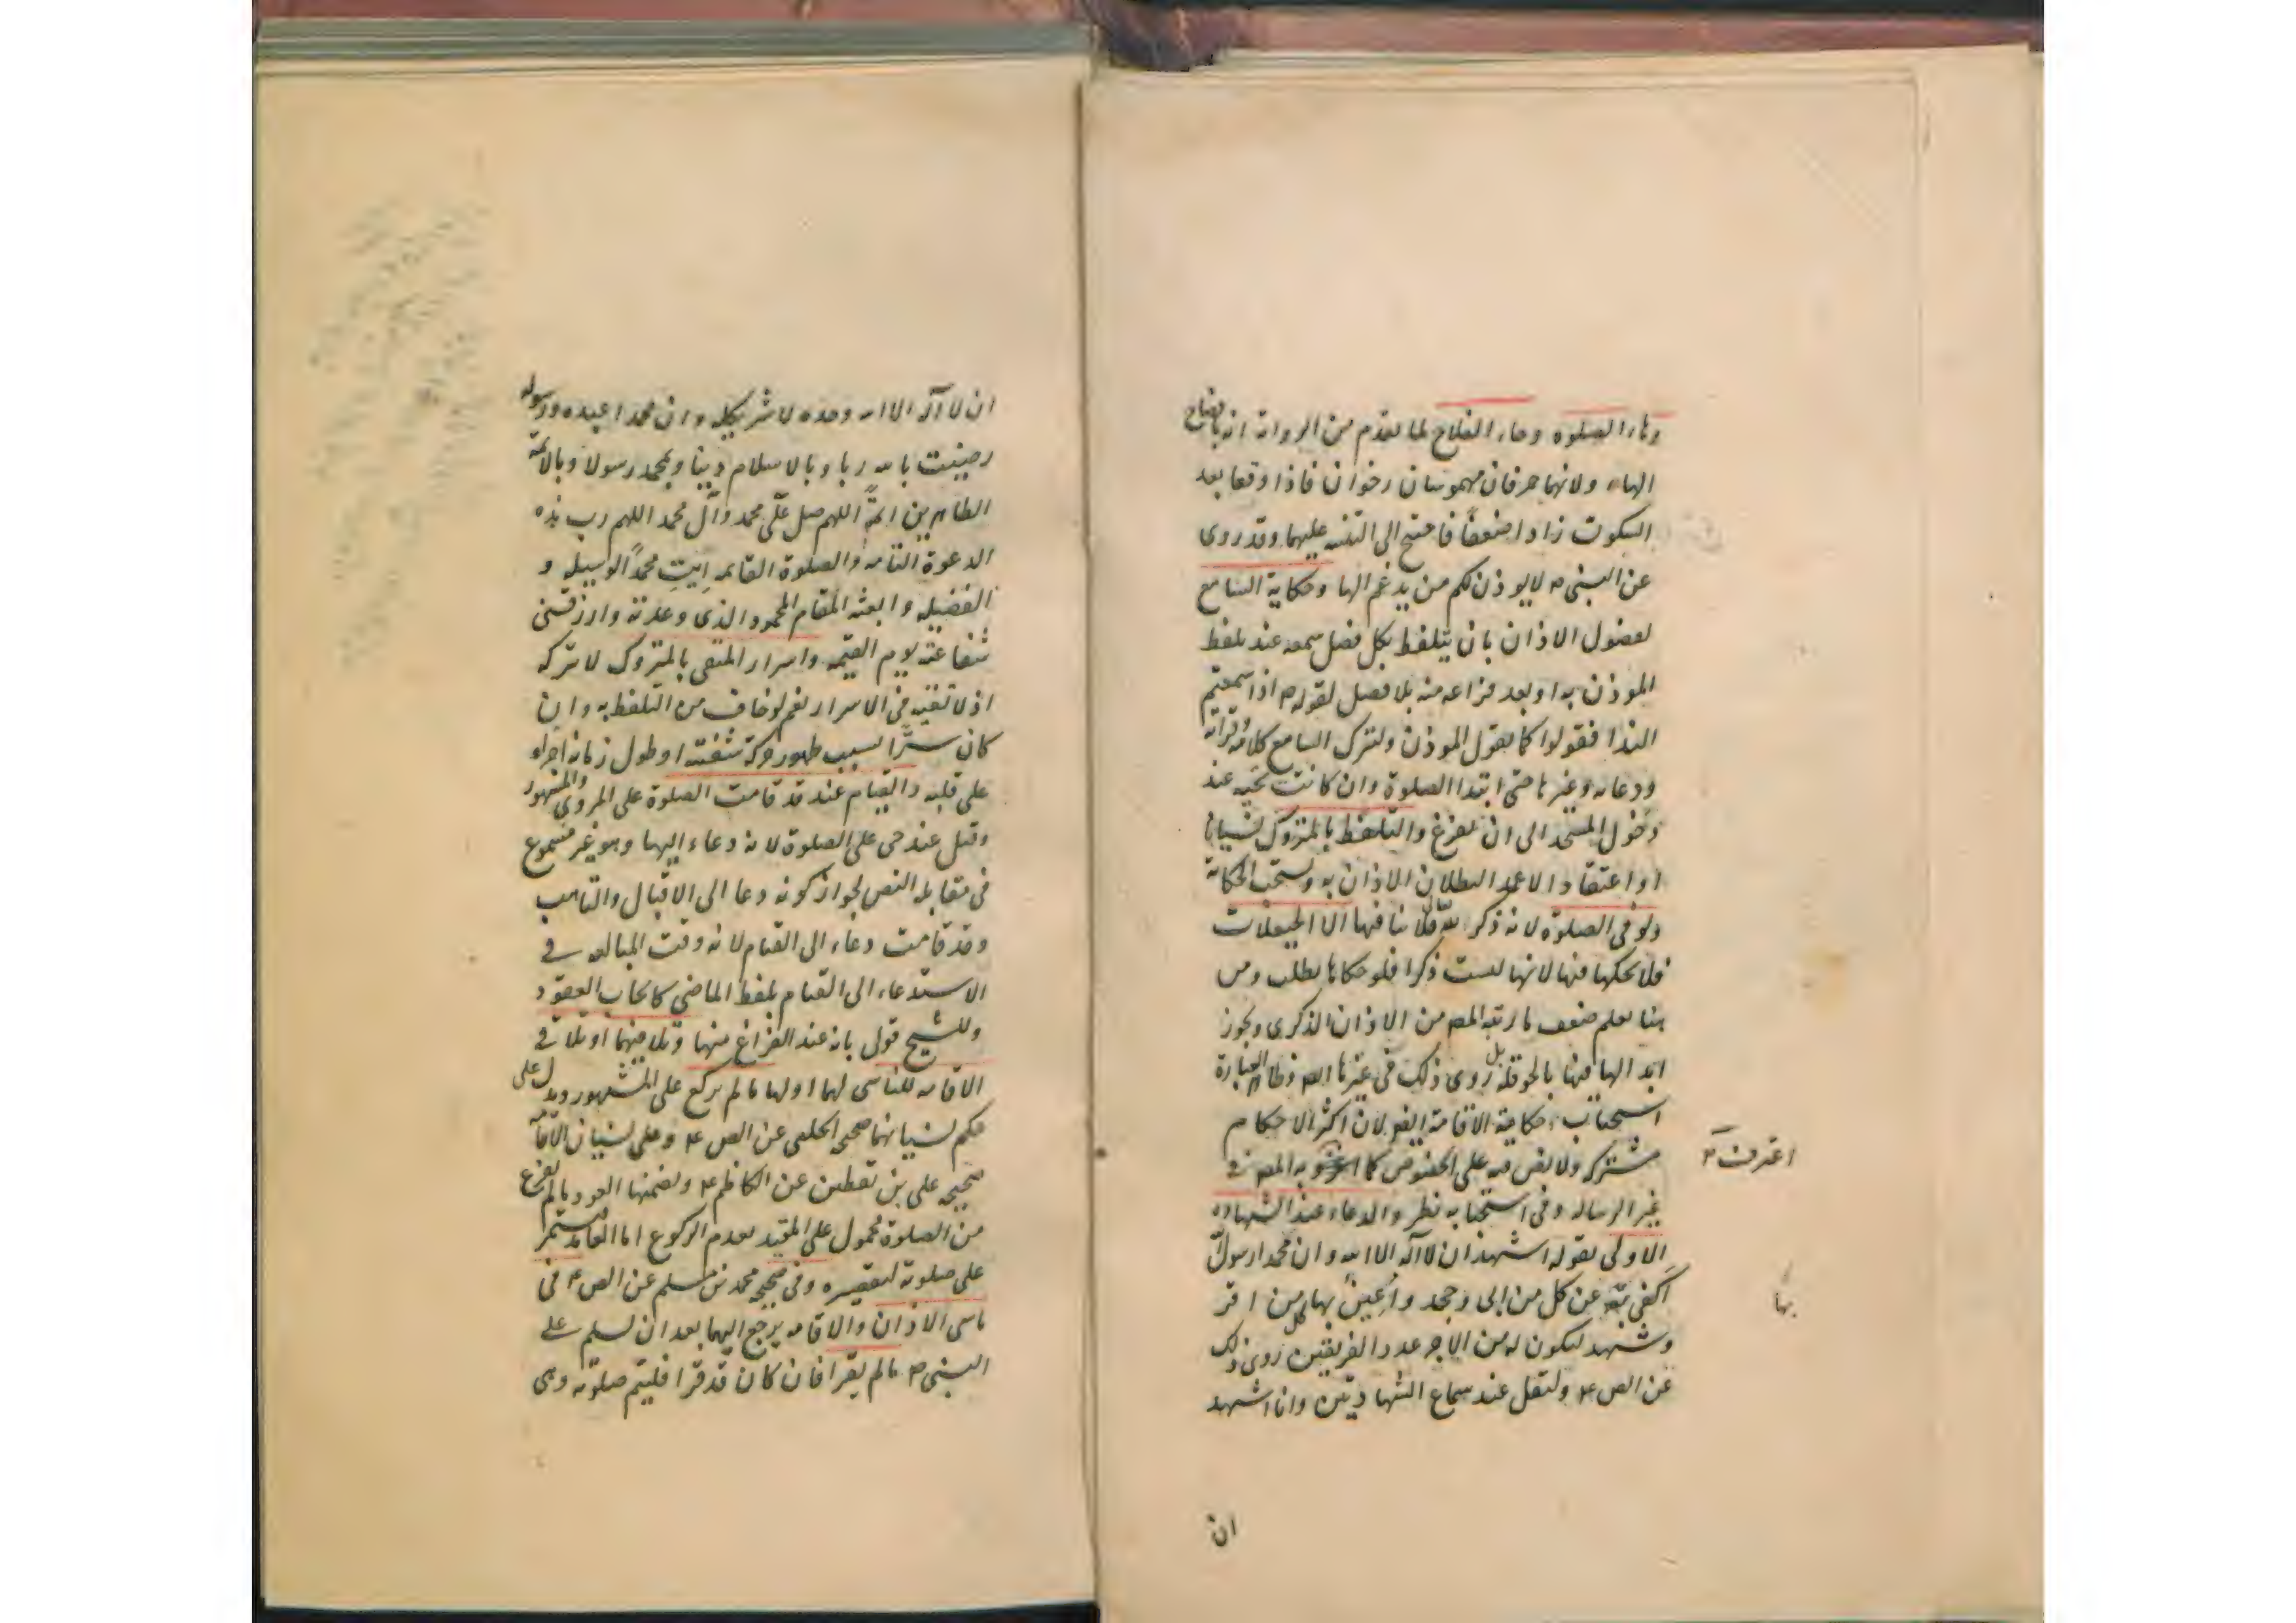 وهاء الصلوة وحاء الفلاح لما تقدم من الرواية انه بافصاح
الهاء ولانهما حرفان مهموسان رخوان فاذا وقعا بعد
السكون زادا ضعفا فاحتيج الى التنبيه عليهما وقد روى
عن النبى ص لا يوذن لكم من يدغم الها وحكاية السامع
لفصول الاذان بان يتلفظ بكل فصل سمعه عند تلفظ
الموذن به او بعد فراغه منه بلا فصل لقوله ص اذا سمعتم
الندا فقولوا كما يقول الموذن وليترك السامع كلامه وقراته
ودعاه وغيرها حتى ابتدا الصلوة وان كانت تحية عند
دخول المسجد الى ان يفرغ والتلفظ بالمتروك نسيانا
او اعتقادا لا عمدا لبطلان الاذان به ويستحب الحكاية
ولو فى الصلوة لانه ذكر لله فلا ينافيها الا الحيعلات
فلا يحكيها فيها لانها ليست ذكرا فلو حكاها بطلت ومن
هنا يعلم ضعف ما رتبه المصـ من الاذان الذكرى ويجوز
ابدالها فيها بالحوقلة بل روى ذلك فى غيرها ايضـ وظاهر العبارة
استحباب حكاية الاقامة ايضـ لان اكثر الاحكام
مشتركه ولا نص فيه على الخصوص كما به المصـ فى
اعترف ص
غير الرساله وفى استحبابه نظر والدعاء عند الشهادة
الاولى بقوله اشهد ان لا آله الا الله وان محمدا رسول الله
اكفى بها عن كل من ابى وجحد واعين بها كل من اقر
بها
وشهد ليكون له من الاجر عدد الفريقين روى ذلك
عن الصـ ع وليقل عند سماع الشهادتين وانا اشهد
ان
ان لا آله الا الله وحده لا شريك له وان محمدا عبده ورسوله
رضيت بالله ربا وبالاسلام دينا وبمحمد رسولا وبالائمة
الطاهرين ائمة اللهم صل على محمد وآل محمد اللهم رب هذه
الدعوة التامه والصلوة القائمه ايت محمدا الوسيله و
الفضيله وابعثه المقام المحمود الذى وعدته وارزقنى
شفاعته يوم القيمه واسرار المتقى بالمتروك لا تركه
اذ لا تقيه فى الاسرار نعم لو خاف من التلفظ به وان
كان سرا لسبب ظهور حركة شفته او طول زمانه اجراه
على قلبه والقيام عند قد قامت الصلوة على المروى والمشهور
وقيل عند حى على الصلوة لانه دعاء اليها وهو غير مسموع
فى مقابله النص لجواز كونه دعا الى الاقبال والتاهب
وقد قامت دعاء الى القيام لانه وقت المبالغه فى
الاستدعاء الى القيام بلفظ الماضى كايجاب العقود
وللشيخ قول بانه عند الفراغ منها وتلافيهما او تلافى
الاقامه للناسى لهما اولها ما لم يركع على المشهور ويدل على
حكم نسيانهما صحيحه الحلبى عن الصـ ع وعلى نسيان الاقامة
صحيحه على بن يقطين عن الكاظم ع وتضمنها العود ما لم يفرغ
من الصلوة محمول على المقيد بعدم الركوع اما العامد فيستمر
على صلوته لتقصيره وفى صحيحه محمد بن مسلم عن الصـ ع فى
ناسى الاذان والاقامه يرجع اليهما بعد ان يسلم على
النبى ص ما لم يقرا فان كان قد قرا فليتم صلوته وهى